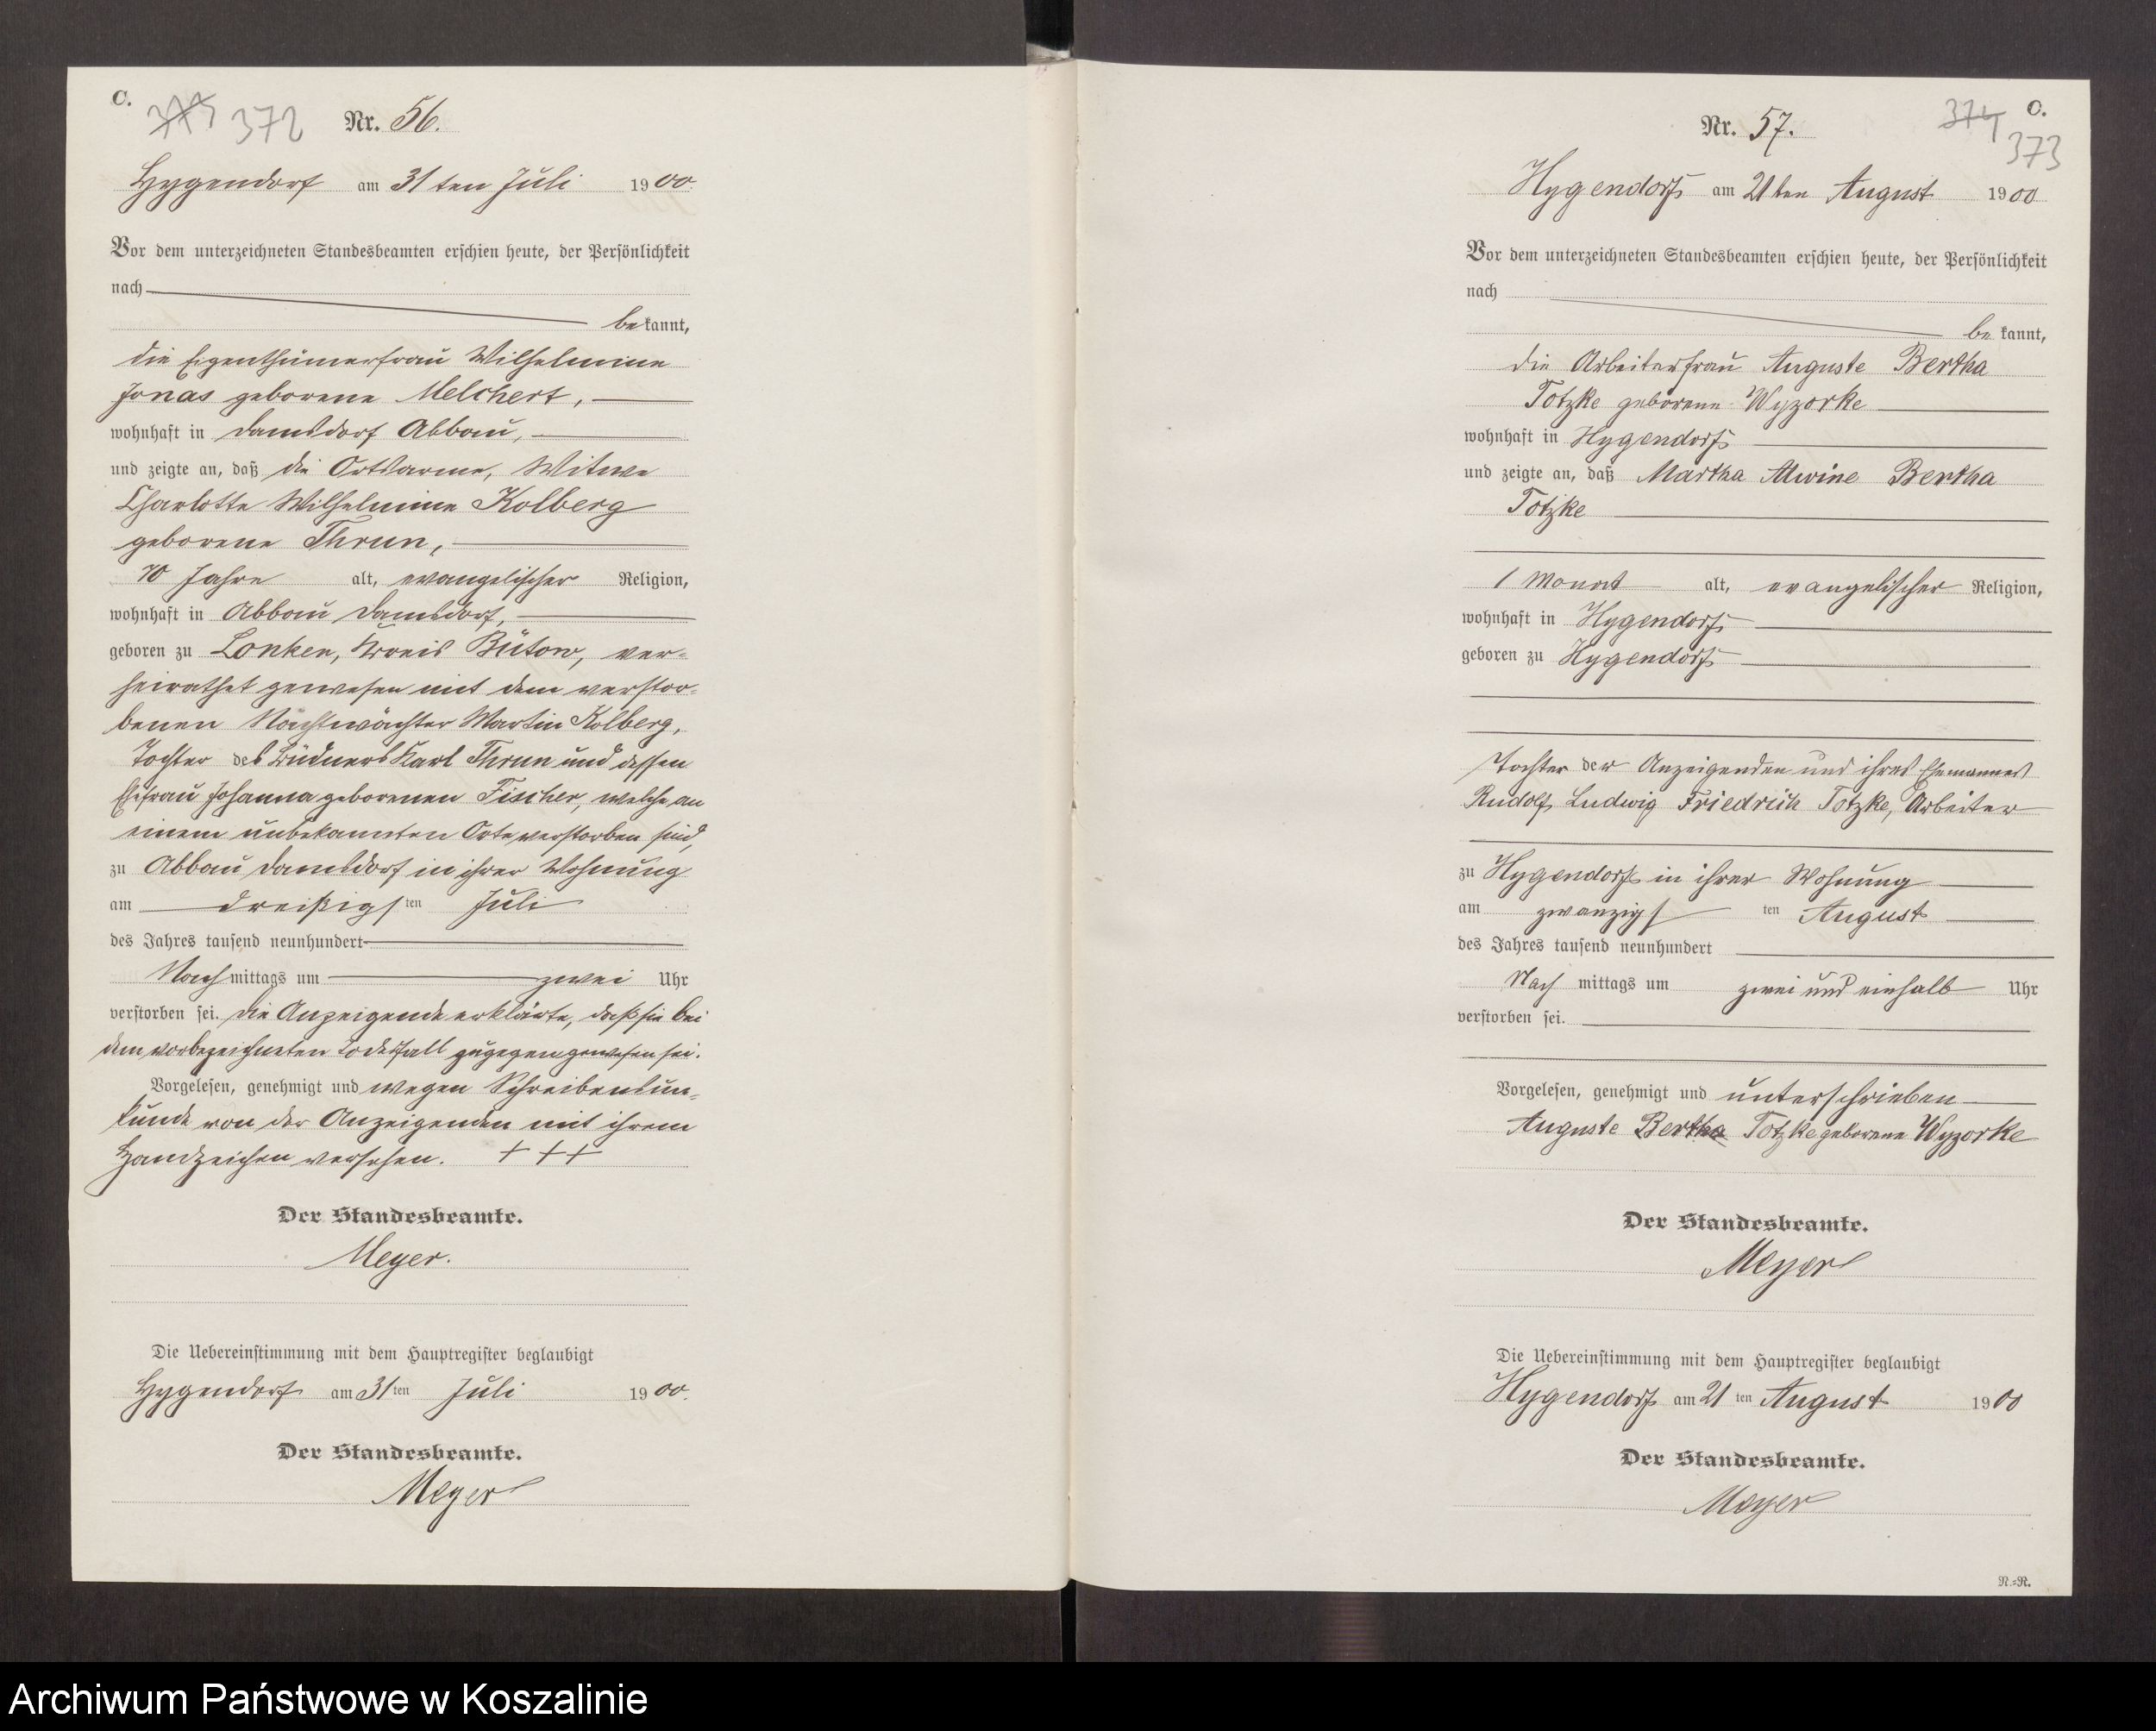 C.
372
Nr. 56.
Hygendorf am 31ten Juli 1900.
Vor dem unterzeichneten Standesbeamten erschien heute, der Persönlichkeit
nach
bekannt,
die Eigenthümerfrau Wilhelmine
Jonas geborene Melchert,
wohnhaft in Damsdorf Abbau,
und zeigte an, daß die Ortsarme, Witwe
Charlotte Wilhelmine Kolberg
geborene Thrun,
70 Jahre alt, evangelischer Religion,
wohnhaft in Abbau Damsdorf,
geboren zu Lonken, Kreis Bütow, ver-
heirathet gewesen mit dem verstor-
benen Nachtwächter Martin Kolberg,
Tochter des Büdners Karl Thrun und dessen
Ehefrau Johanna geborenen Fischer, welche an
einem unbekannten Orte verstorben sind,
zu Abbau Damsdorf in ihrer Wohnung
am dreißigsten Juli
des Jahres tausend neunhundert
Nachmittags um zwei Uhr
verstorben sei. Die Anzeigende erklärte, daß sie bei
dem vorbezeichneten Todesfall zugegen gewesen sei.
Vorgelesen, genehmigt und wegen Schreibensun-
kunde von der Anzeigenden mit ihrem
Handzeichen versehen. + + +
Der Standesbeamte.
Meyer.
Die Uebereinstimmung mit dem Hauptregister beglaubigt
Hygendorf am 31ten Juli 1900.
Der Standesbeamte.
Meyer
C.
374
373
Nr. 57.
Hygendorf am 21ten August 1900
Vor dem unterzeichneten Standesbeamten erschien heute, der Persönlichkeit
nach
bekannt,
die Arbeiterfrau Auguste Bertha
Totzke geborene Wyzorke
wohnhaft in Hygendorf
und zeigte an, daß Martha Alwine Bertha
Totzke
1 Monat alt, evangelischer Religion,
wohnhaft in Hygendorf
geboren zu Hygendorf
Tochter der Anzeigenden und ihres Ehemannes
Rudolf Ludwig Friedrich Totzke, Arbeiter
zu Hygendorf in ihrer Wohnung
am zwanzigsten August
des Jahres tausend neunhundert
Nachmittags um zwei und einhalb Uhr
verstorben sei.
Vorgelesen, genehmigt und unterschrieben
Auguste Bertha Totzke geborene Wyzorke
Der Standesbeamte.
Meyer
Die Uebereinstimmung mit dem Hauptregister beglaubigt
Hygendorf am 21ten August 1900
Der Standesbeamte.
Meyer
R.=R.
Archiwum Państwowe w Koszalinie